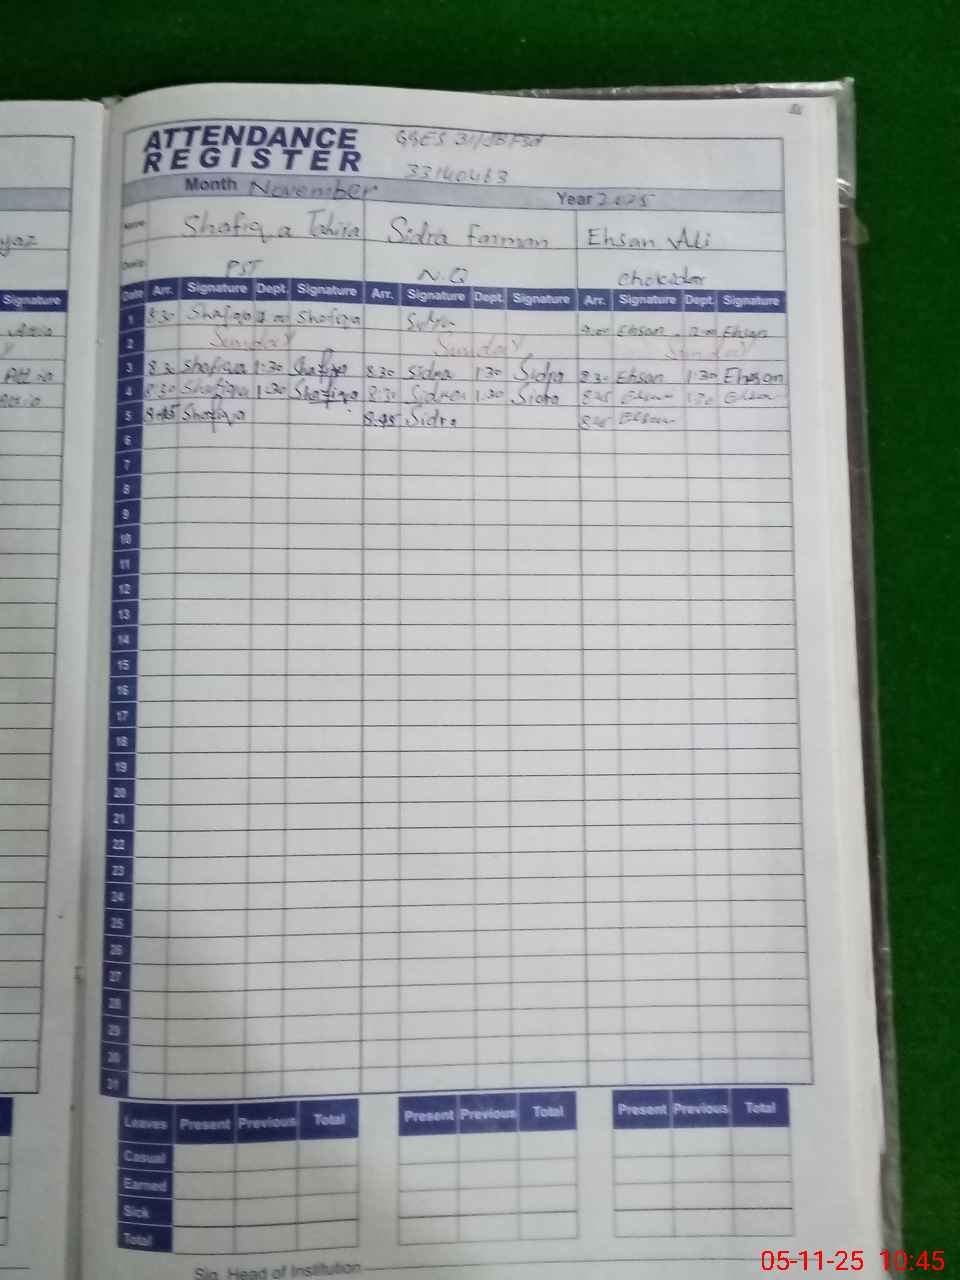 ATTENDANCE
REGISTER
GGES 31/JB Fsd
33140463
Month November Year 2025
Name Shafiqa Tahira Sidra Farman Ehsan Ali
PST N.Q Chokidar
Signature
Date Arr. Signature Dept. Signature Arr. Signature Dept. Signature Arr. Signature Dept. Signature
1 8:30 Shafiqa Shafiqa 9:00 Ehsan 12:00 Ehsan
2 Sunday Sunday Sunday
3 8:30 Shafiqa 1:30 Shafiqa 8:30 Sidra 1:30 Sidra 8:30 Ehsan 1:30 Ehsan
4 8:30 Shafiqa 1:30 Shafiqa 8:30 Sidra 1:30 Sidra 8:45 Ehsan 1:30 Ehsan
5 8:45 Shafiqa 8:45 Sidra 8:45 Ehsan
6
7
8
9
10
11
12
13
14
15
16
17
18
19
20
21
22
23
24
25
26
27
28
29
30
31
Leaves Present Previous Total Present Previous Total Present Previous Total
Casual
Earned
Sick
Total
Sig. Head of Institution
05-11-25 10:45